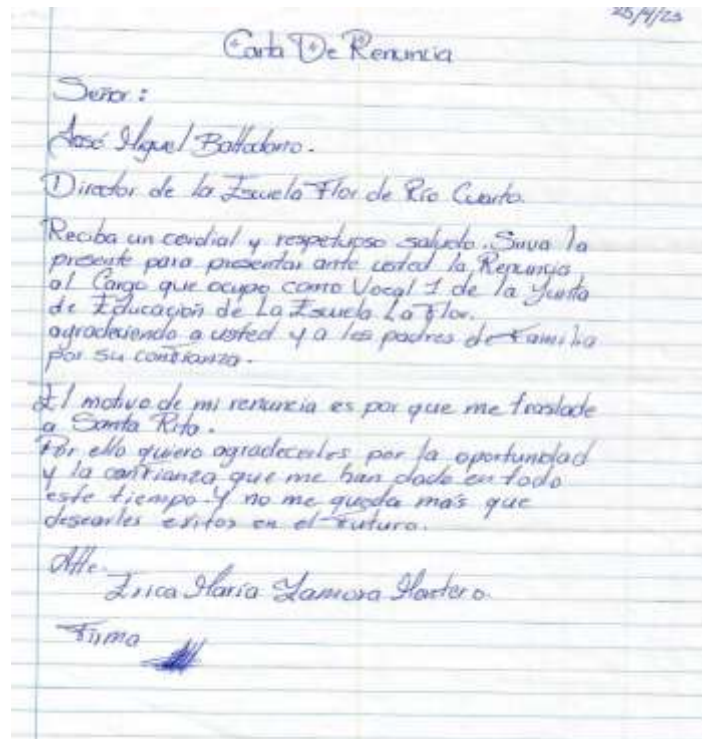 25/4/23
Carta De Renuncia
Señor:
José Miguel
Director de la Escuela Flor de Río Cuarto.
Reciba un cordial y respetuoso saludo. Sirva la
presente para presentar ante usted la Renuncia
al Cargo que ocupo como Vocal 1 de la Junta
de Educación de La Escuela La Flor.
agradeciendo a usted y a los padres de Familia
por su confianza.
El motivo de mi renuncia es por que me traslade
a Santa Rita.
Por ello quiero agradecerles por la oportunidad
y la confianza que me han dado en todo
este tiempo. Y no me queda más que
desearles exitos en el Futuro.
Atte.
Erica María Zamora
Firma